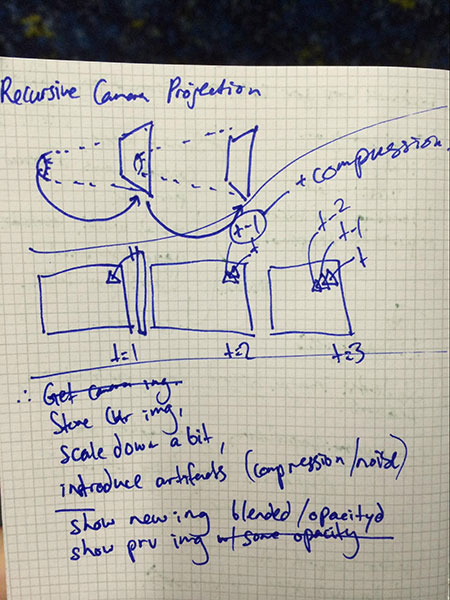 Recursive Camera Projection
+ compression.
t-1
t-2
t-1
t
t
t
t=1
t=2
t=3
∴ Get camera img.
Store cur img,
scale down a bit,
introduce artifacts (compression/noise)
show new img blended/opacity'd
show prv img w/ some opacity